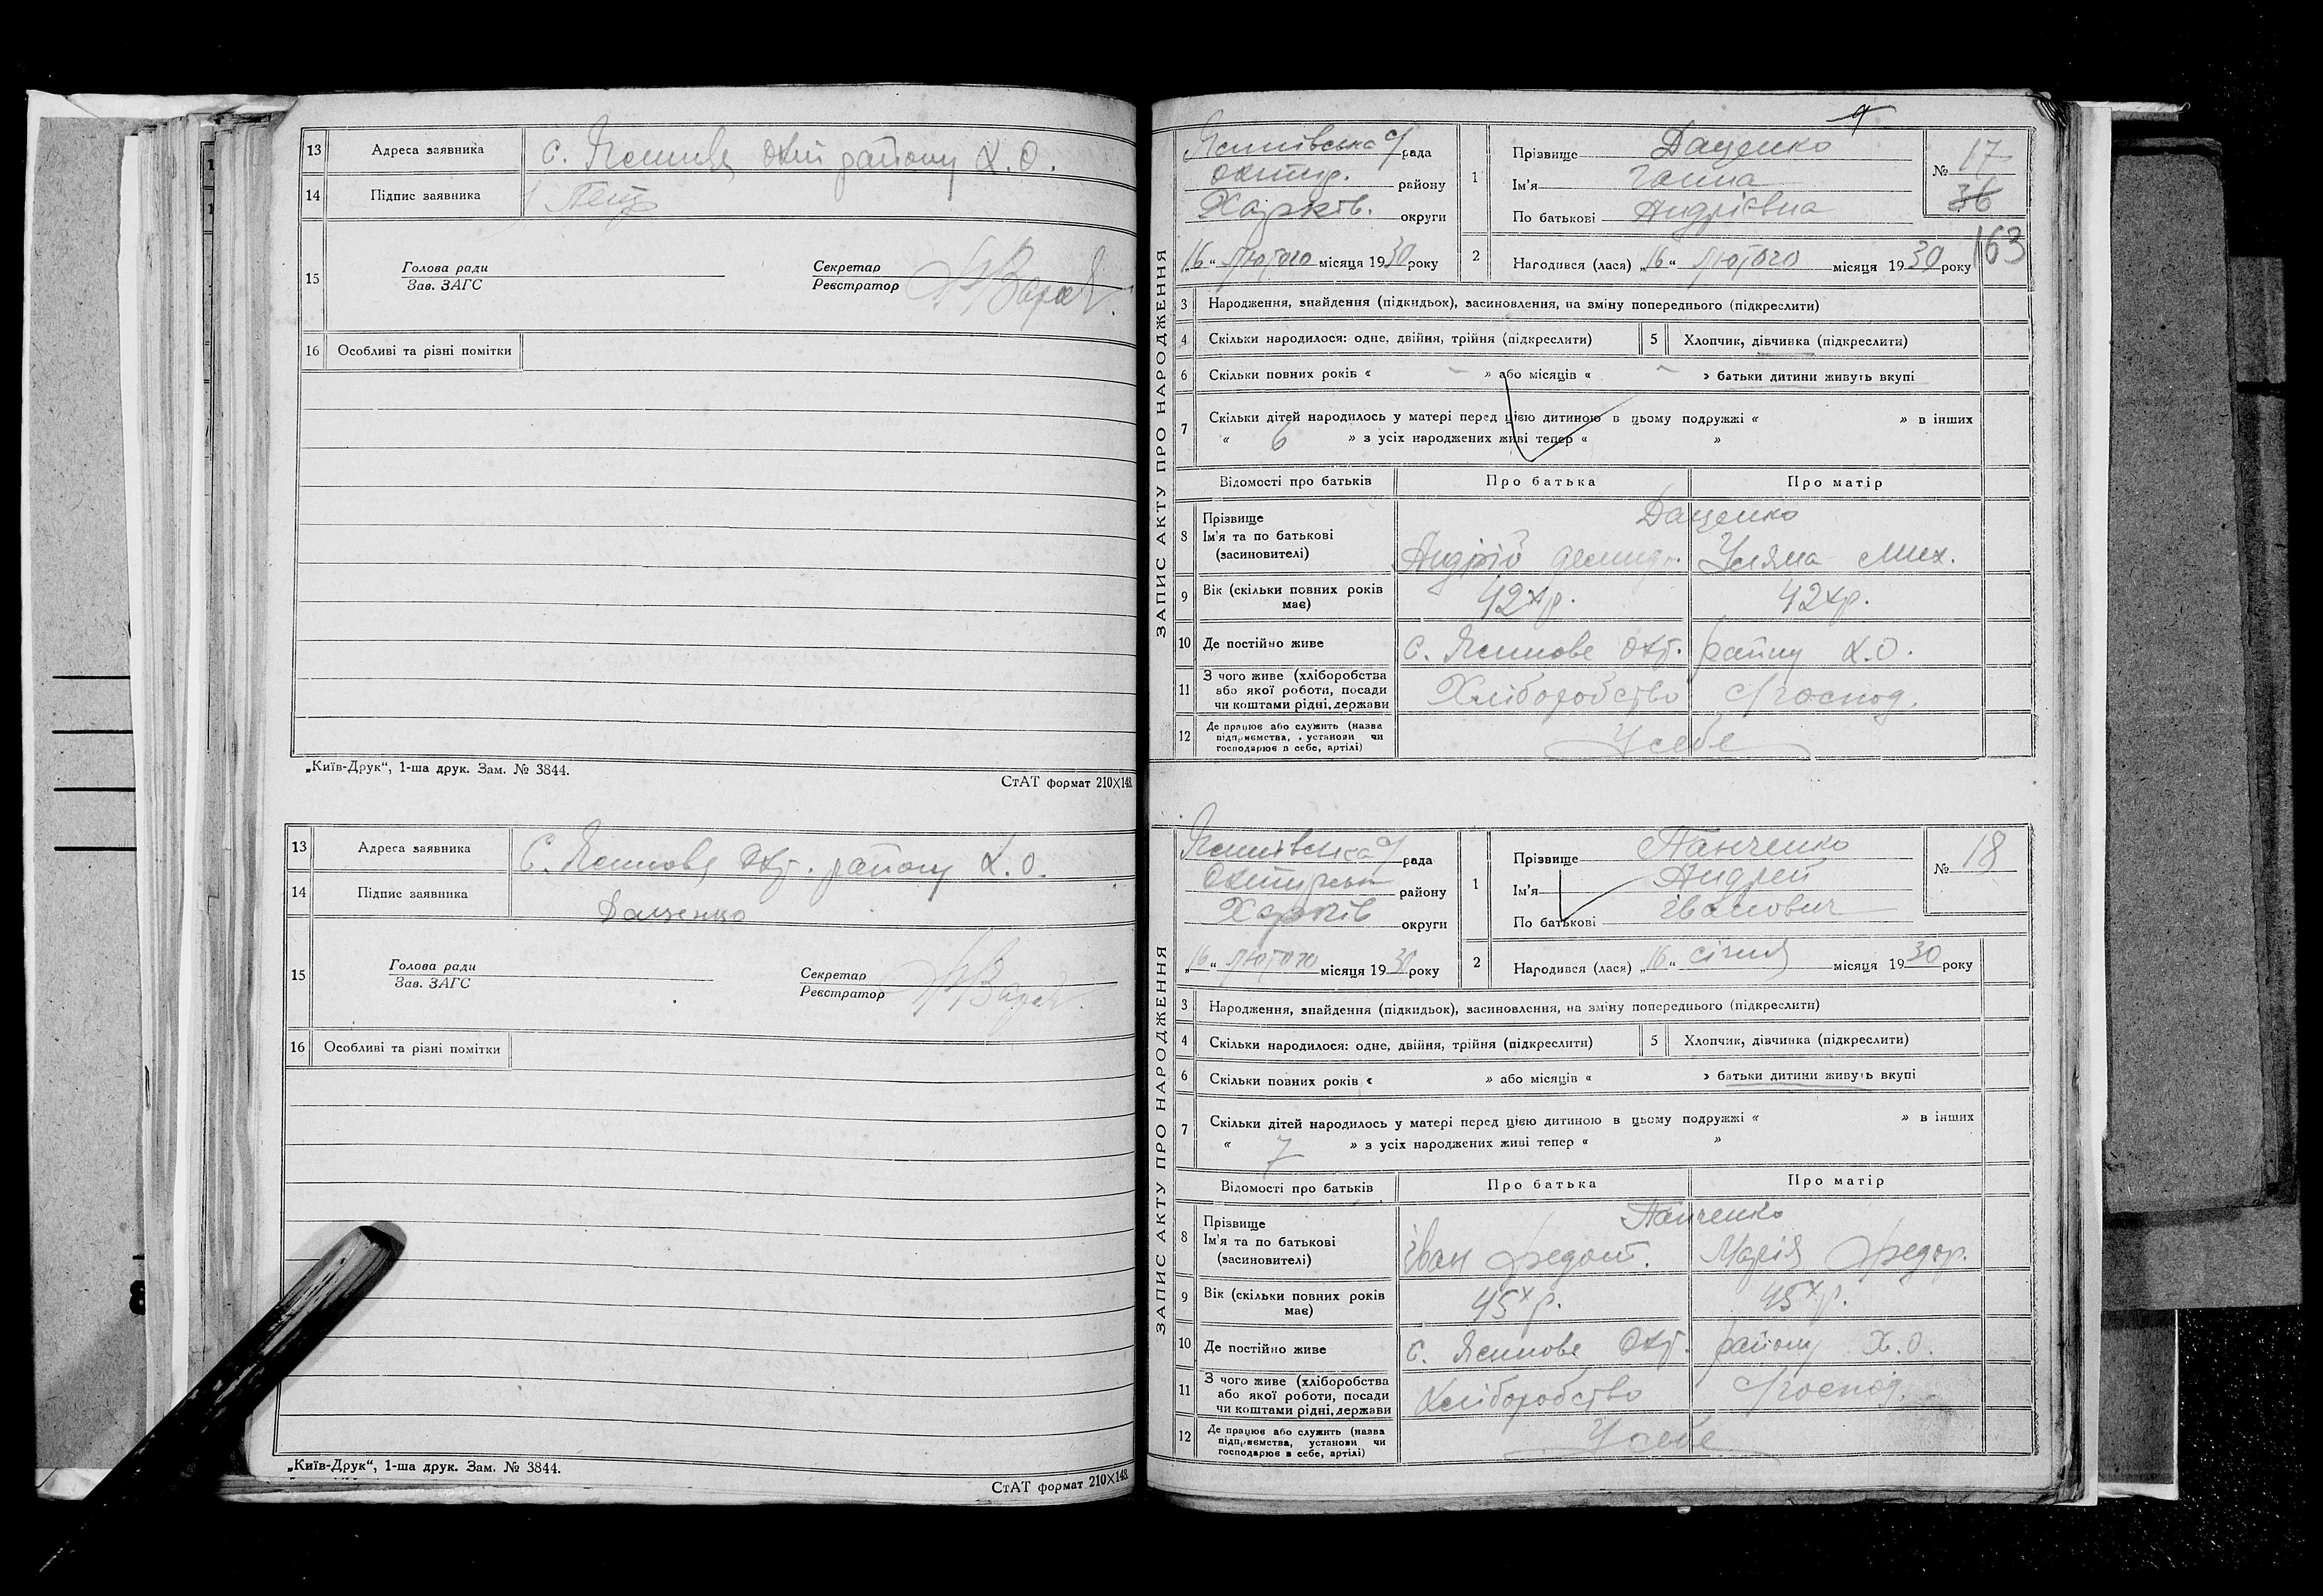 13 Адреса заявника с. Ясенове Охт району Х.О.
14 Підпис заявника
15 Голова ради Секретар
Зав. ЗАГС Реєстратор
16 Особливі та різні помітки
„Київ-Друк“, 1-ша друк. Зам. № 3844.
СтАТ формат 210×148.
13 Адреса заявника С. Ясенове Охт. району Х.О.
14 Підпис заявника Даценко
15 Голова ради Секретар
Зав. ЗАГС Реєстратор
16 Особливі та різні помітки
„Київ-Друк“, 1-ша друк. Зам. № 3844.
СтАТ формат 210×148.
ЗАПИС АКТУ ПРО НАРОДЖЕННЯ
Ясенівська с/рада
Охтир. району
Харків. округи
„16“ Лютого місяця 1930 року
1 Прізвище Даценко
Ім'я Ганна
По батькові Андріївна
№ 17
36
163
2 Народився (лася) „16“ Лютого місяця 1930 року
3 Народження, знайдення (підкидьок), засиновлення, на зміну попереднього (підкреслити)
4 Скільки народилося: одне, двійня, трійня (підкреслити) 5 Хлопчик, дівчинка (підкреслити)
6 Скільки повних років « – » або місяців « – » батьки дитини живуть вкупі
7 Скільки дітей народилось у матері перед цією дитиною в цьому подружжі « » в інших
« 6 » з усіх народжених живі тепер « »
Відомості про батьків Про батька Про матір
8 Прізвище Даценко
Ім'я та по батькові
(засиновителі) Андрій Демид. Уляна Мих.
9 Вік (скільки повних років має) 42 х р. 42 х р.
10 Де постійно живе с. Ясенове Охт. району Х.О.
11 З чого живе (хліборобства
або якої роботи, посади
чи коштами рідні, держави Хліборобство с/господ.
12 Де працює або служить (назва
підприємства, установи чи
господарює в себе, артілі) У себе
ЗАПИС АКТУ ПРО НАРОДЖЕННЯ
Ясенівська с/рада
Охтирськ району
Харків округи
„16“ Лютого місяця 1930 року
1 Прізвище Панченко
Ім'я Андрей
По батькові Іванович
№ 18
2 Народився (лася) „16“ січня місяця 1930 року
3 Народження, знайдення (підкидьок), засиновлення, на зміну попереднього (підкреслити)
4 Скільки народилося: одне, двійня, трійня (підкреслити) 5 Хлопчик, дівчинка (підкреслити)
6 Скільки повних років « » або місяців « » батьки дитини живуть вкупі
7 Скільки дітей народилось у матері перед цією дитиною в цьому подружжі « » в інших
« 7 » з усіх народжених живі тепер « »
Відомості про батьків Про батька Про матір
8 Прізвище Панченко
Ім'я та по батькові
(засиновителі) Іван Федот. Марія Федор.
9 Вік (скільки повних років має) 45 х р. 45 х р.
10 Де постійно живе с. Ясенове Охт. району Х.О.
11 З чого живе (хліборобства
або якої роботи, посади
чи коштами рідні, держави Хліборобство с/господ.
12 Де працює або служить (назва
підприємства, установи чи
господарює в себе, артілі) У себе